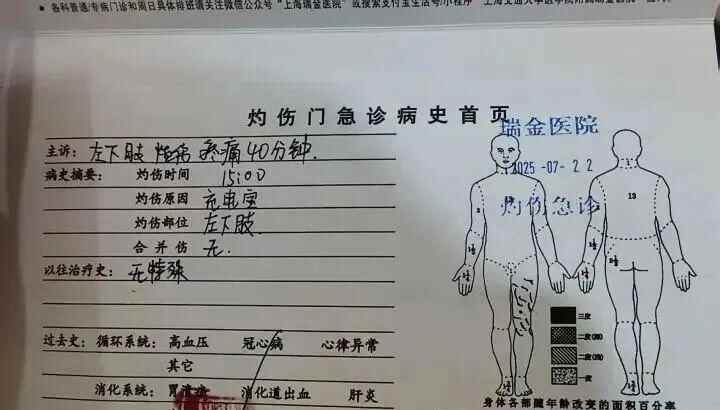 各科普通/专病门诊和周日具体排班请关注微信公众号“上海瑞金医院”或搜索支付宝生活号/小程序“上海交通大学医学院附属瑞金医院
灼伤门急诊病史首页
瑞金医院
2025-07-22
灼伤急诊
主诉: 左下肢 疼痛40分钟.
病史摘要: 灼伤时间 15:00
灼伤原因 充电宝
灼伤部位 左下肢.
合并伤 无.
以往治疗史: 无特殊
过去史: 循环系统: 高血压 冠心病 心律异常
其它
消化系统: 胃溃疡 消化道出血 肝炎
13
三度
二度(深)
二度(浅)
一度
身体各部随年龄改变的面积百分率